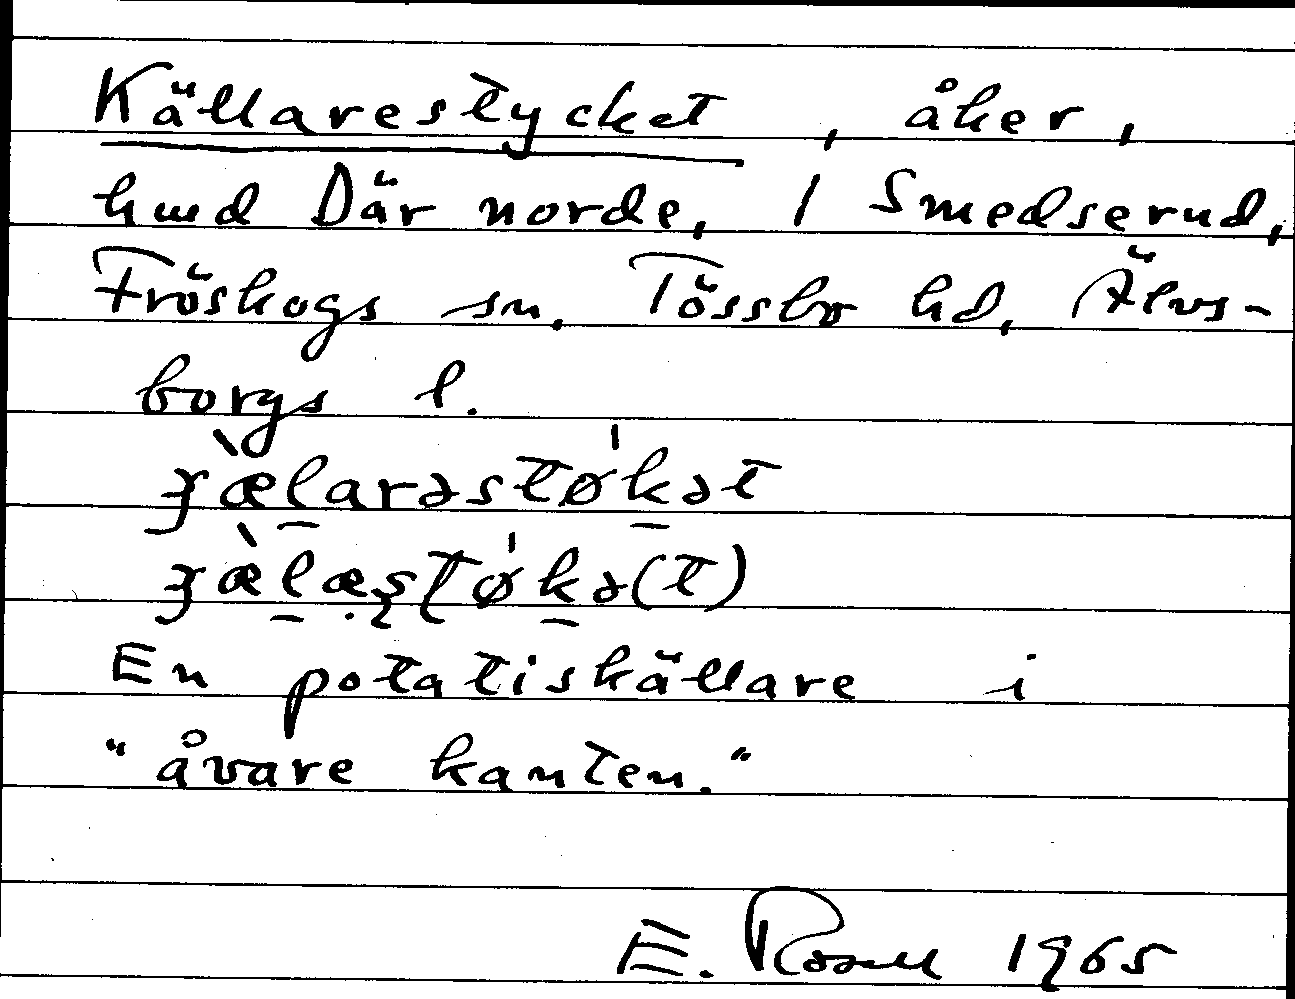 Källarestycket, åker,
hmd Där norde, 1 Smedserud,
Fröskogs sn. Tössbo hd, Älvs-
borgs l.
ʒæ̀l̠arəstø̍k̠ət
ʒæ̀l̠æştø̍k̠ə(t)
En potatiskällare i
"åvare kanten."
E. Rosell 1965